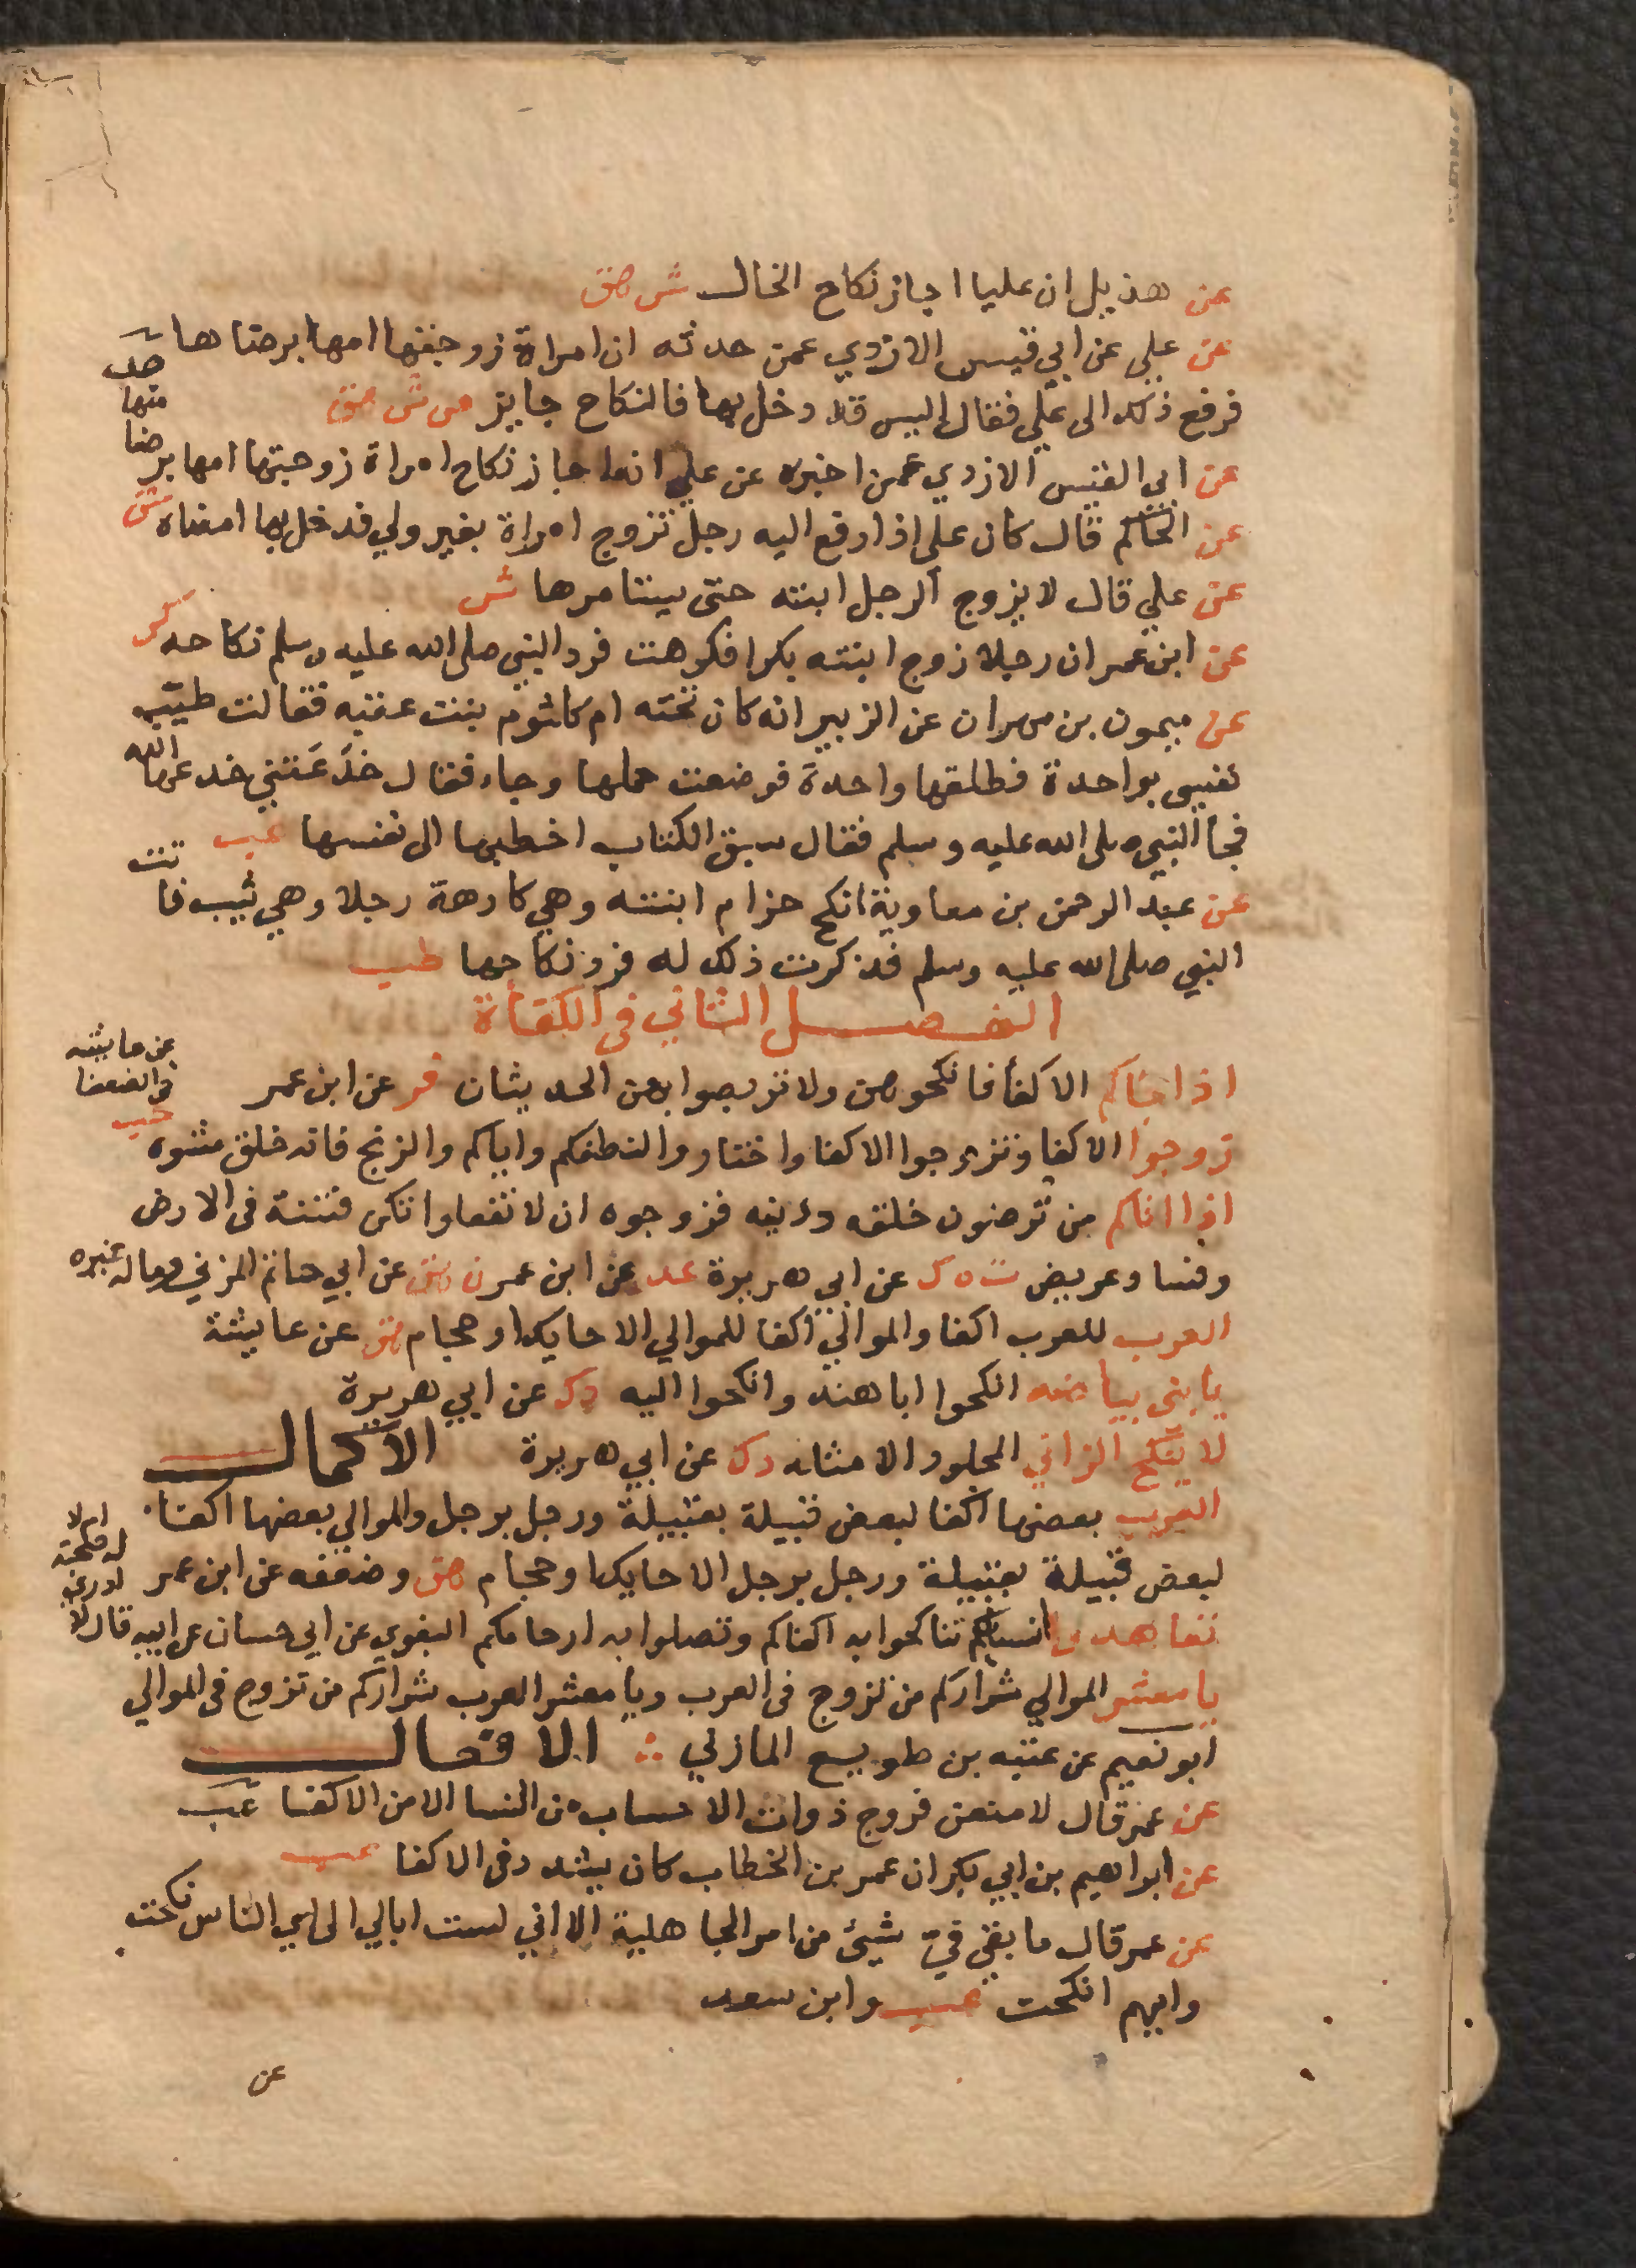 عن هذيل ان عليا اجاز نكاح الخال ش هق
عن علي عن ابي قيس الازدي عمن حدثه ان امراة زوجتها امها برضاها
فرفع ذلك الى علي فقال اليس قد دخل بها فالنكاح جايز ص ش هق
عن ابي القيس الازدي عمن اخبره عن علي انه اجاز نكاح امراة زوجتها امها برضا
منها
عن الحاكم قال كان علي اذا رفع اليه رجل تزوج امراة بغير ولي فدخل بها امضاه ش
عن علي قال لا يزوج الرجل ابنته حتى يستامرها ش
عن ابن عمر ان رجلا زوج ابنته بكرا فكرهت فرد النبي صلى الله عليه وسلم نكاحه كر
عن ميمون بن مهران عن الزبير انه كان تحته ام كلثوم بنت عقبه فقالت طيب
نفسي بواحدة فطلقها واحدة فوضعت حملها وجاء فقال خدَعَتني خدعها الله
فجا النبي صلى الله عليه وسلم فقال سبق الكتاب اخطبها الى نفسها عب
عن عبد الرحمن بن معاوية انكح حزام ابنته وهي كارهة رجلا وهي ثيب فا تت
النبي صلى الله عليه وسلم فذكرت ذلك له فرد نكاحها طب
الفصل الثاني في الكفأة
اذا جاكم الاكفأ فانكحوهن ولا تربصوا بهن الحديثان فر عن ابن عمر
زوجوا الاكفا وتزوجوا الاكفا واختاروا لنطفكم واياكم والزنج فانه خلق مشوه
عن عايشه
في الضعفا
حب
اذا اتاكم من ترضون خلقه ودينه فزوجوه ان لا تفعلوا تكن فتنة في الارض
وفسا د عريض ت ه ك عن ابي هريرة عد عن ابن عمر ن هق عن ابي حاتم المزني وماله غيره
العرب للعرب اكفا والموالي اكفا للموالي الا حايك او حجام هق عن عايشة
يا بنى بياضه انكحوا ابا هند وانكحوا اليه د ك عن ابي هريرة
لا ينكح الزاني المجلود الا مثله د ك عن ابي هريرة الاكمال
العرب بعضها اكفا لبعض قبيلة بقبيلة ورجل برجل والموالي بعضها اكفا
لبعض قبيلة بقبيلة ورجل برجل الا حايك او حجام هق وضعفه عن ابن عمر
تعاهدوا انسابكم تناكحوا به اكفاكم وتصلوا به ارحامكم البغوي عن ابي حسان عن ابيه قال لا
يا معشر الموالي شراركم من تزوج في العرب ويا معشر العرب شراركم من تزوج في الموالي
ابو نعيم عن عتبه بن طويع المازني الافعال
عن عمر قال لا منعن فروج ذوات الاحساب من النسا الا من الاكفا عب
عن ابراهيم بن ابي بكر ان عمر بن الخطاب كان يشدد في الاكفا عب
عن عمر قال ما بقي فيّ شيئ من امر الجاهلية الا اني لست ابالي الى اي الناس نكحت
وايهم انكحت عب وابن سعد
عن